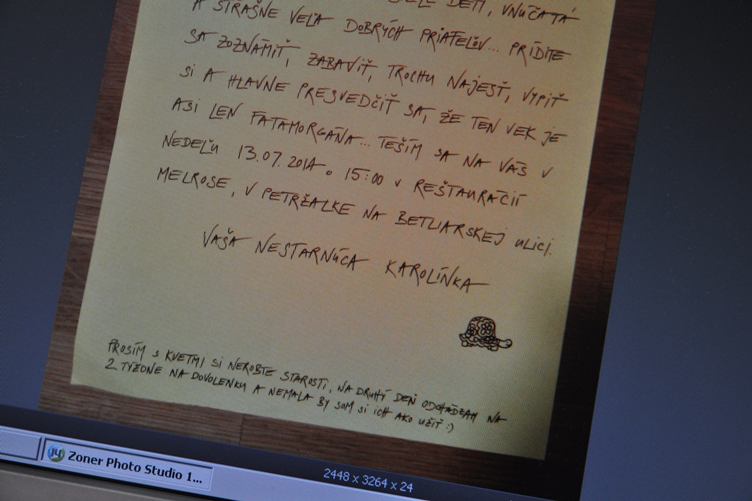 DETI, VNÚČATÁ
A STRAŠNE VEĽA DOBRÝCH PRIATEĽOV... PRÍDITE
SA ZOZNÁMIŤ, ZABAVIŤ, TROCHU NAJESŤ, VYPIŤ
SI A HLAVNE PRESVEDČIŤ SA, ŽE TEN VEK JE
ASI LEN FATAMORGÁNA... TEŠÍM SA NA VÁS V
NEDEĽU 13.07.2014 o 15:00 v REŠTAURÁCII
MELROSE, V PETRŽALKE NA BETLIARSKEJ ulici.
VAŠA NESTARNÚCA KAROLÍNKA
PROSÍM S KVETMI SI NEROBTE STAROSTI, NA DRUHÝ DEŇ ODCHÁDZAM NA
2 TÝŽDNE NA DOVOLENKU A NEMALA BY SOM SI ICH AKO UŽIŤ :)
Zoner Photo Studio 1...
2448 x 3264 x 24